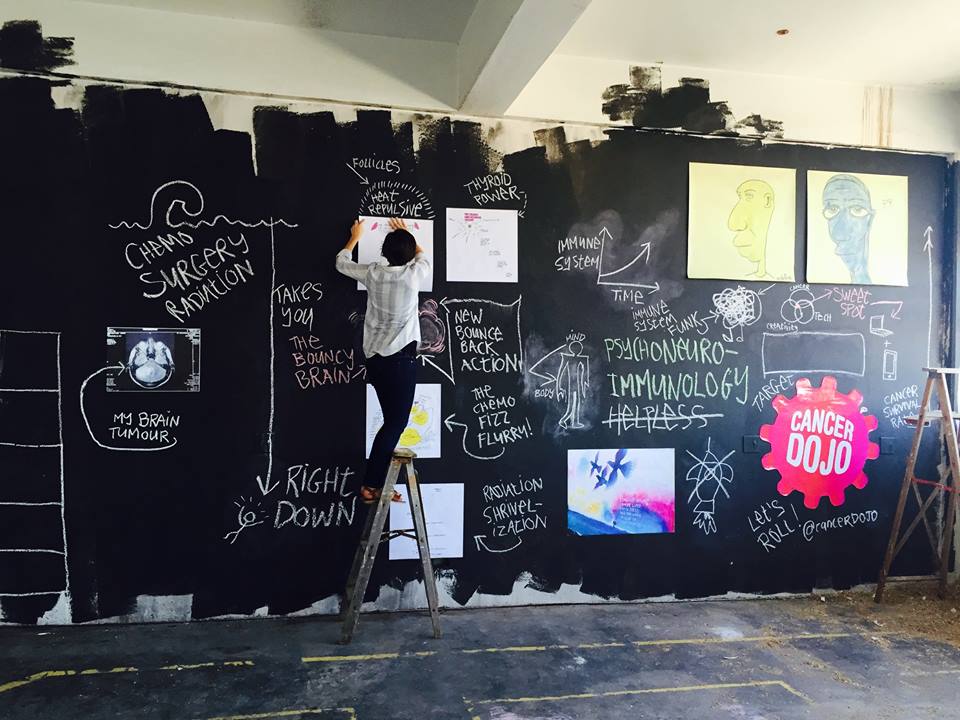 CHEMO
SURGERY
RADIATION
MY BRAIN
TUMOUR
TAKES
YOU
THE
BOUNCY
BRAIN
RIGHT
DOWN
FOLLICLES
HEAT
REPULSIVE
THYROID
POWER
NEW
BOUNCE
BACK
ACTION!
THE
CHEMO
FIZZ
FLURRY!
RADIATION
SHRIVEL-
IZATION
IMMUNE
SYSTEM
TIME
MIND
BODY
IMMUNE
SYSTEM
FUNK
PSYCHONEURO-
IMMUNOLOGY
HELPLESS
CANCER
TECH
CREATIVITY
SWEET
SPOT
TARGET
CANCER
DOJO
CANCER
SURVIVAL
LET'S
ROLL!
@CANCERDOJO